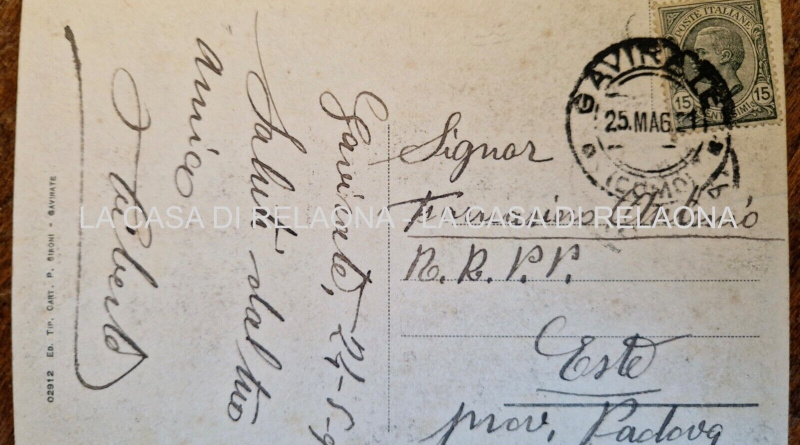 Gavirate, 24-5-9
Saluti dal tuo
amico
Umberto
02912 Ed. Tip. Cart. P. Bironi - Gavirate
POSTE ITALIANE
15 15
GAVIRATE
25. MAG. 21
(COMO)
Signor
N. R. P. P.
Este
prov. Padova
LA CASA DI RELAQNA - LA CASA DI RELAQNA